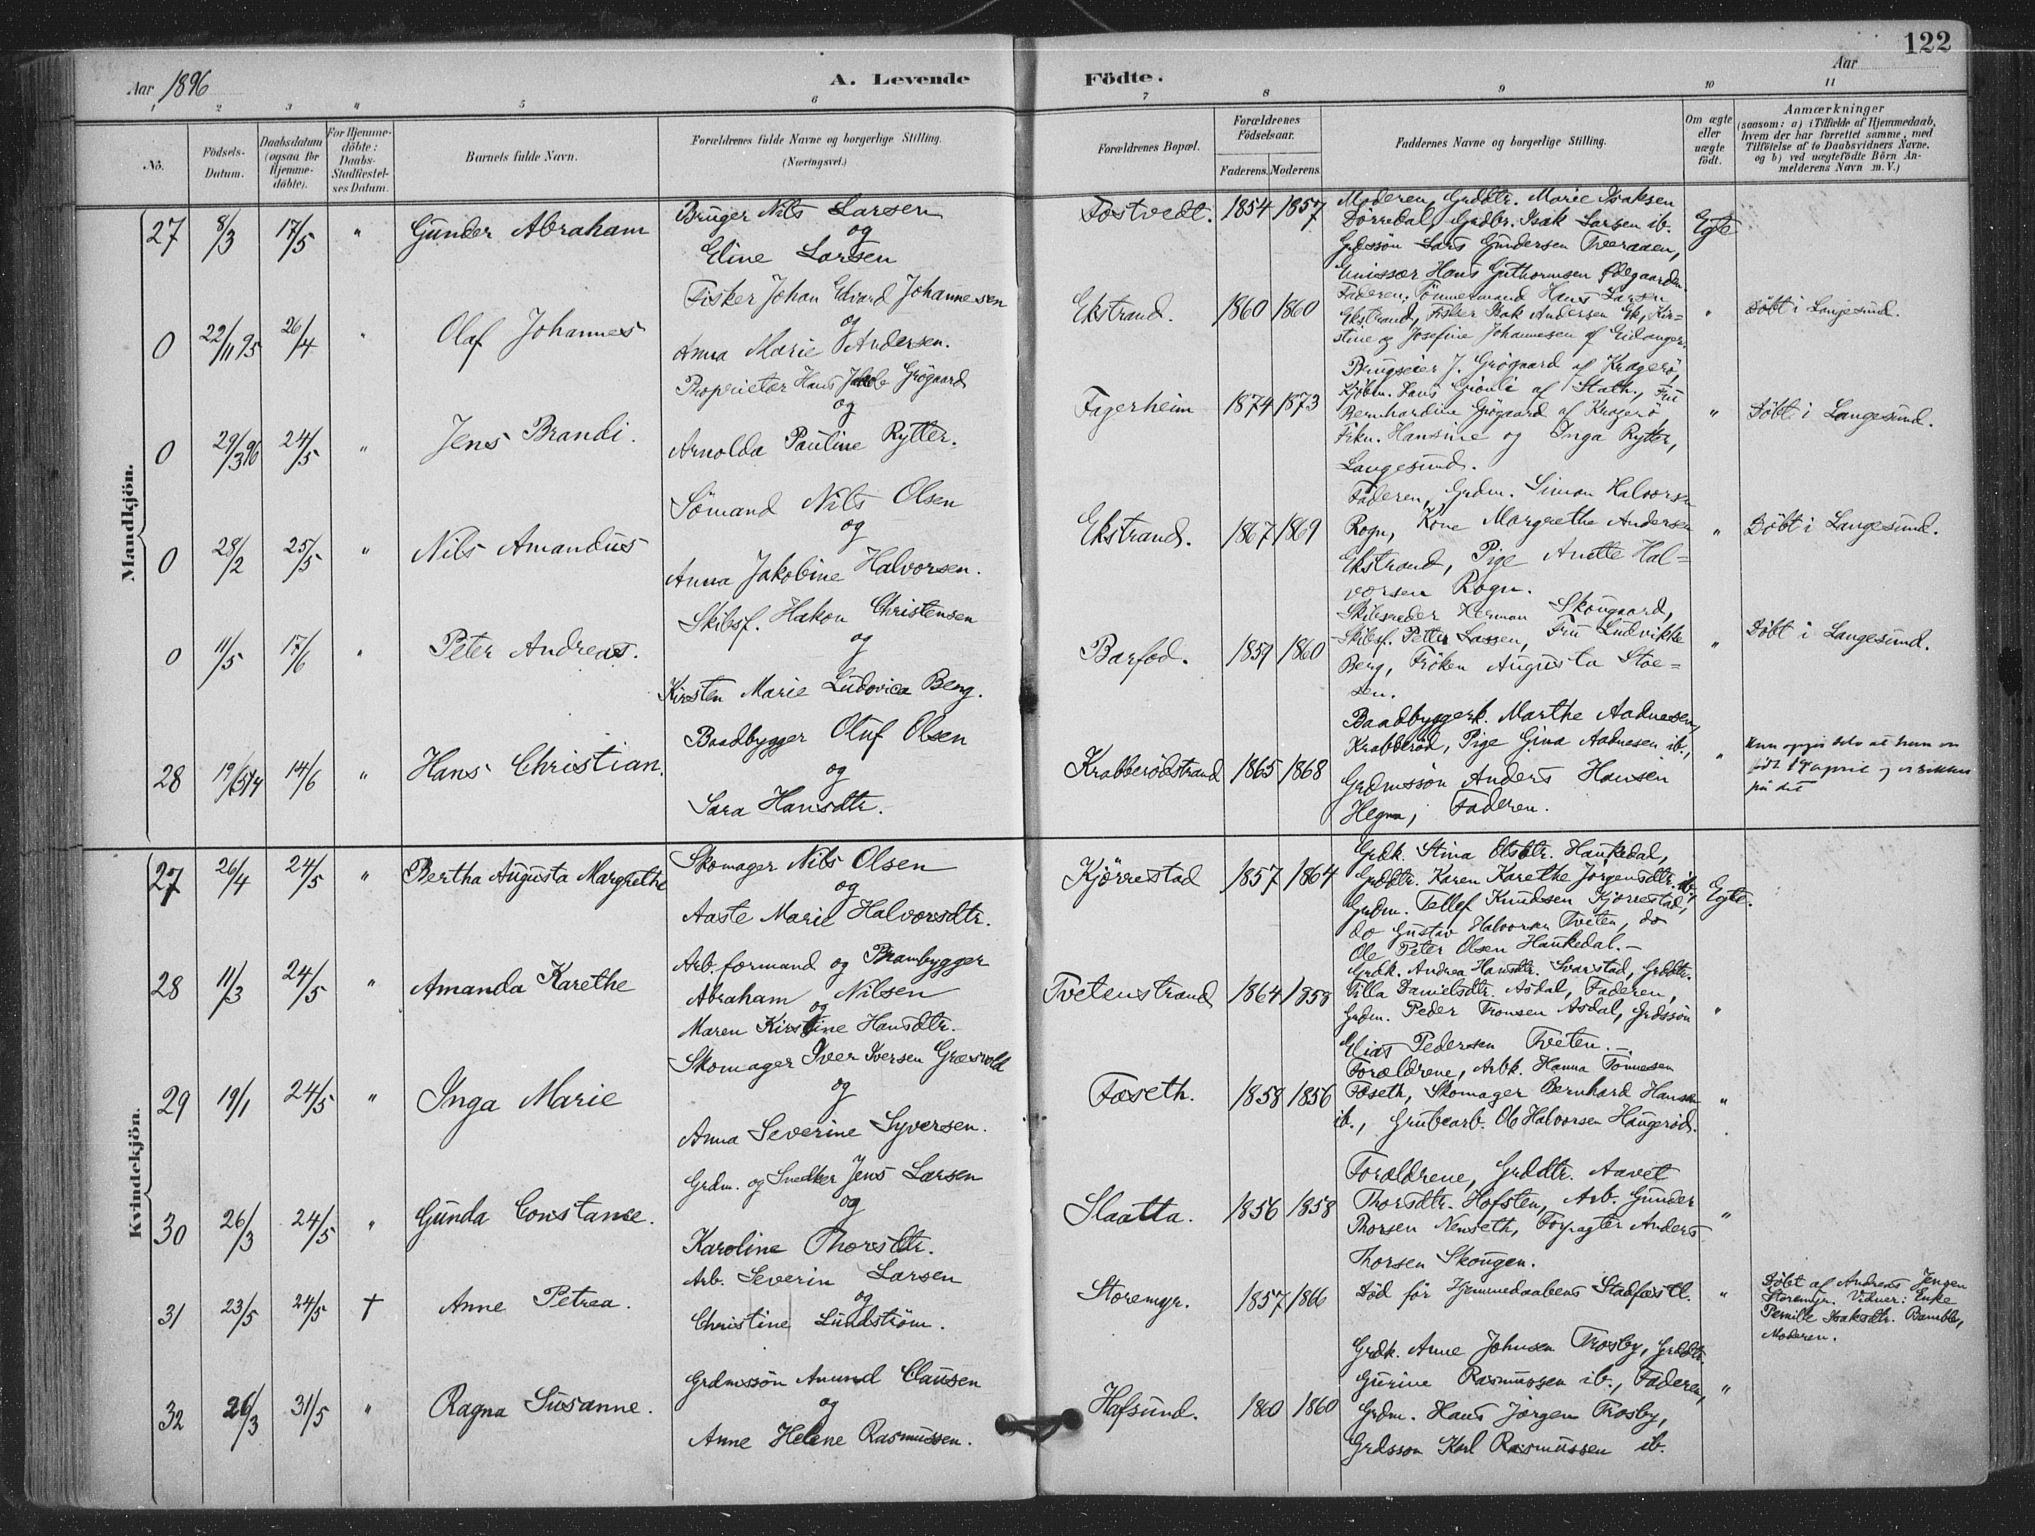 122
Aar 1896
A. Levende Födte.
Aar
1 2 3 4 5 6 7 8 9 10 11
No.
Födsels-Datum.
Daabsdatum (ogsaa for Hjemmedöbte).
For Hjemmedöbte: Daabs-Stadfæstelses Datum.
Barnets fulde Navn.
Forældrenes fulde Navne og borgerlige Stilling.
(Næringsvei.)
Forældrenes Bopæl.
Forældrenes Födselsaar.
Faderens. Moderens.
Faddernes Navne og borgerlige Stilling.
Om ægte eller uægte födt.
Anmærkninger
(saasom: a) i Tilfælde af Hjemmedaab,
hvem der har forrettet samme, med
Tilföielse af to Daabsvidners Navne.
og b) ved uægtefödte Börn An-
melderens Navn m.V.)
Mandkjön.
27 8/3 17/5 " Gunder Abraham
Bruger Nils Larsen
og
Eline Larsen
Tostvedt. 1854 1857
Moderen, Grddtr. Marie Isaksen
Dørredal, Grdbr. Isak Larsen ib.
Grdssøn Lars Gundersen Tveraaen,
Hans Guthormsen Ødegaarden
Egte
0 22/11 95 26/4 " Olaf Johannes
Fisker Johan Edvard Johannesen
og
Anna Marie Andersen.
Ekstrand. 1860 1860
Faderen, Tømmermand Hans Larsen
Ekstrand, Fisker Isak Andersen Ek, Kir-
stine og Josefine Johannesen af Eidanger.
" Døbt i Langesund.
0 29/3 96 24/5 " Jens Brandi.
Proprietær Hans Jakob Grøgaard
og
Arnolda Pauline Rytter.
Fagerheim 1874 1873
Brugseier J. Grøgaard af Kragerø,
Kjøbm. Hans af Stath., Fru
Bernhardine Grøgaard af Kragerø
Frkn. Hansine og Inga Rytter,
Langesund.
" Døbt i Langesund.
0 28/2 25/5 " Nils Amandus
Sømand Nils Olsen
og
Anna Jakobine Halvorsen.
Ekstrand. 1867 1869
Faderen, Grdm. Simon Halvorsen
Rogn, Kone Margrethe Andersen
Ekstrand, Pige Anette Hal-
vorsen Rogn.
" Døbt i Langesund.
0 11/5 17/6 " Peter Andreas.
Skibsf. Hakon Christensen
og
Kirsten Marie Ludovica Berg.
Barfod. 1859 1860
Skibsreder Herman Skougaard,
Skibsf. Petter Lassen, Fru Ludvikke
Berg, Frøken Augusta Stoe-
sen.
" Døbt i Langesund.
28 19/5 14/6 " Hans Christian.
Baadbygger Oluf Olsen
og
Sara Hansdtr.
Krabberødstrand 1865 1868
Baadbyggerk. Marthe Aadnesen,
Krabberød, Pige Gina Aadnesen ib.,
Grdmssøn Anders Hansen
Hegna, Faderen.
" april
på det
Kvindekjön.
27 26/4 24/5 " Bertha Augusta Margrethe
Skomager Nils Olsen
og
Aaste Marie Halvorsdtr.
Kjørrestad 1857 1864
Grdk. Stina Olsdtr. Haukedal,
Grddtr. Karen Karethe Jørgensdtr. ib,
Grdm. Tellef Knudsen Kjørrestad,
do Gustav Halvorsen Tveten, do
Ole Peter Olsen Haukedal.-
Egte.
28 11/3 24/5 " Amanda Karethe
Arb.formand og Brambygger
Abraham Nilsen
og
Maren Kirstine Hansdtr.
Tvetenstrand 1864 1858
Grdk. Andrea Hansdtr. Svarstad, Grddtr.
Tilla Danielsdtr. Asdal, Faderen,
Grdm. Peder Tronsen Asdal, Grdssøn
Elias Pedersen Tveten.-
"
29 19/1 24/5 " Inga Marie
Skomager Iver Iversen Græsvold
og
Anna Severine Syversen.
Foseth. 1858 1856
Forældrene, Arbk. Hanna Tønnesen
Foseth, Skomager Bernhard Hansen
ib., Grubearb. Ole Halvorsen Haugerød.
"
30 26/3 24/5 " Gunda Constance.
Grdm. og Snedker Jens Larsen
og
Karoline Thorsdtr.
Slaatta. 1856 1858
Forældrene, Grddtr. Aavet
Thorsdtr. Hofsten, Arb. Gunder
Thorsen Nenseth, Forpagter Anders
Thorsen Skougen.
"
31 23/5 24/5 † Anne Petrea.
Arb. Severin Larsen
og
Christine Lundstrøm.
Storemyr. 1857 1866
Død før Hjemmedaabens Stadfæstl.
" Døbt af Andreas Jensen
Storemyr. Vidner: Enke
Pernille Isaksdtr. Bamble,
Moderen.
32 26/3 31/5 " Ragna Susanne.
Grdmssøn Amund Clausen
og
Anne Helene Rasmussen.
Hafsund. 1860 1860
Grdk. Anne Johnsen Trosby, Grddtr.
Gurine Rasmussen ib., Faderen,
Grdm. Hans Jørgen Trosby,
Grdssøn Karl Rasmussen ib.
"